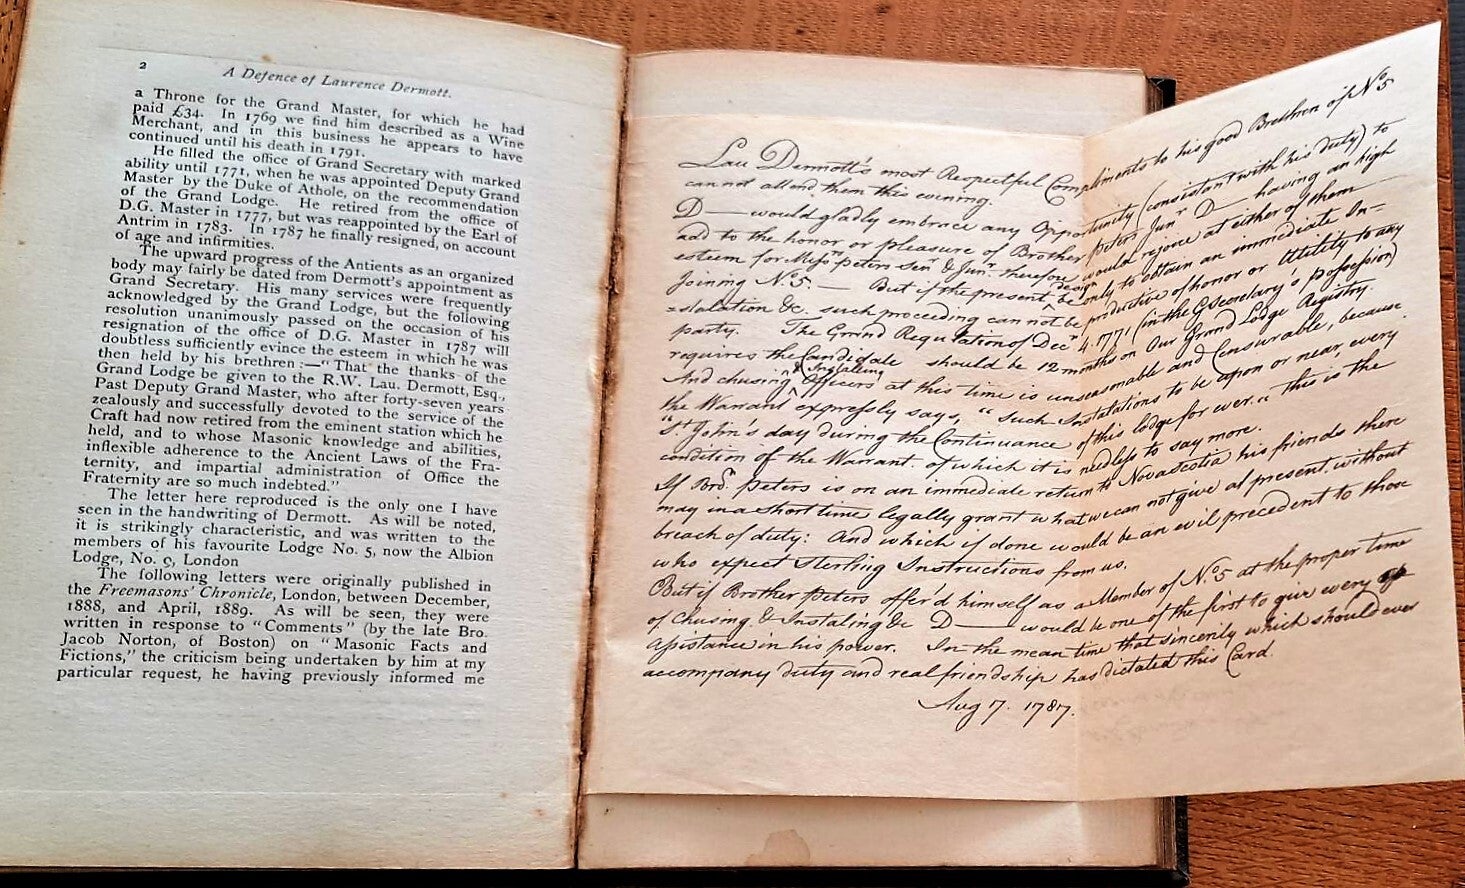 2
A Defence of Laurence Dermott.
a Throne for the Grand Master, for which he had
paid £34. In 1769 we find him described as a Wine
Merchant, and in this business he appears to have
continued until his death in 1791.
He filled the office of Grand Secretary with marked
ability until 1771, when he was appointed Deputy Grand
Master by the Duke of Athole, on the recommendation
of the Grand Lodge. He retired from the office of
D.G. Master in 1777, but was reappointed by the Earl of
Antrim in 1783. In 1787 he finally resigned, on account
of age and infirmities.
The upward progress of the Antients as an organized
body may fairly be dated from Dermott's appointment as
Grand Secretary. His many services were frequently
acknowledged by the Grand Lodge, but the following
resolution unanimously passed on the occasion of his
resignation of the office of D.G. Master in 1787 will
doubtless sufficiently evince the esteem in which he was
then held by his brethren :—"That the thanks of the
Grand Lodge be given to the R.W. Lau. Dermott, Esq.,
Past Deputy Grand Master, who after forty-seven years
zealously and successfully devoted to the service of the
Craft had now retired from the eminent station which he
held, and to whose Masonic knowledge and abilities,
inflexible adherence to the Ancient Laws of the Fra-
ternity, and impartial administration of Office the
Fraternity are so much indebted."
The letter here reproduced is the only one I have
seen in the handwriting of Dermott. As will be noted,
it is strikingly characteristic, and was written to the
members of his favourite Lodge No. 5, now the Albion
Lodge, No. 9, London
The following letters were originally published in
the Freemasons' Chronicle, London, between December,
1888, and April, 1889. As will be seen, they were
written in response to "Comments" (by the late Bro.
Jacob Norton, of Boston) on "Masonic Facts and
Fictions," the criticism being undertaken by him at my
particular request, he having previously informed me
Lau Dermott's most Respectful Compliments to his good Brethren of No. 5
cannot attend them this evening.
D— would gladly embrace any Opportunity (consistant with his duty) to
add to the honor or pleasure of Brother Peters Junr. D— having an high
esteem for Messrs. Peters Senr. & Junr. therefore would rejoice at either of them
Joining No. 5. — But if the present design be only to obtain an immediate In=
=stalation &c. such proceeding can not be productive of honor or Utility to any
party. The Grand Regulation of Decr. 4. 1771 (in the G. Secretary's possession)
requires the Candidate should be 12 months on Our Grand Lodge Registry.
And chusing & Instaling Officers at this time is unseasonable and Censurable, because
the Warrant expressly says, "Such Instalations to be upon or near, every
"St John's day during the Continuance of this lodge for ever." this is the
condition of the Warrant. of which it is needless to say more.
If Bror. Peters is on an immediate return to Nova Scotia his friends there
may in a short time legally grant what we can not give at present, without
breach of duty: And which if done would be an evil precedent to those
who expect Sterling Instructions from us.
But if Brother Peters offer'd himself as a Member of No. 5 at the proper time
of Chusing & Instaling &c D— would be one of the first to give every
assistance in his power. In the mean time that sincerity which should ever
accompany duty and real friendship has dictated this Card.
Aug 7. 1787.